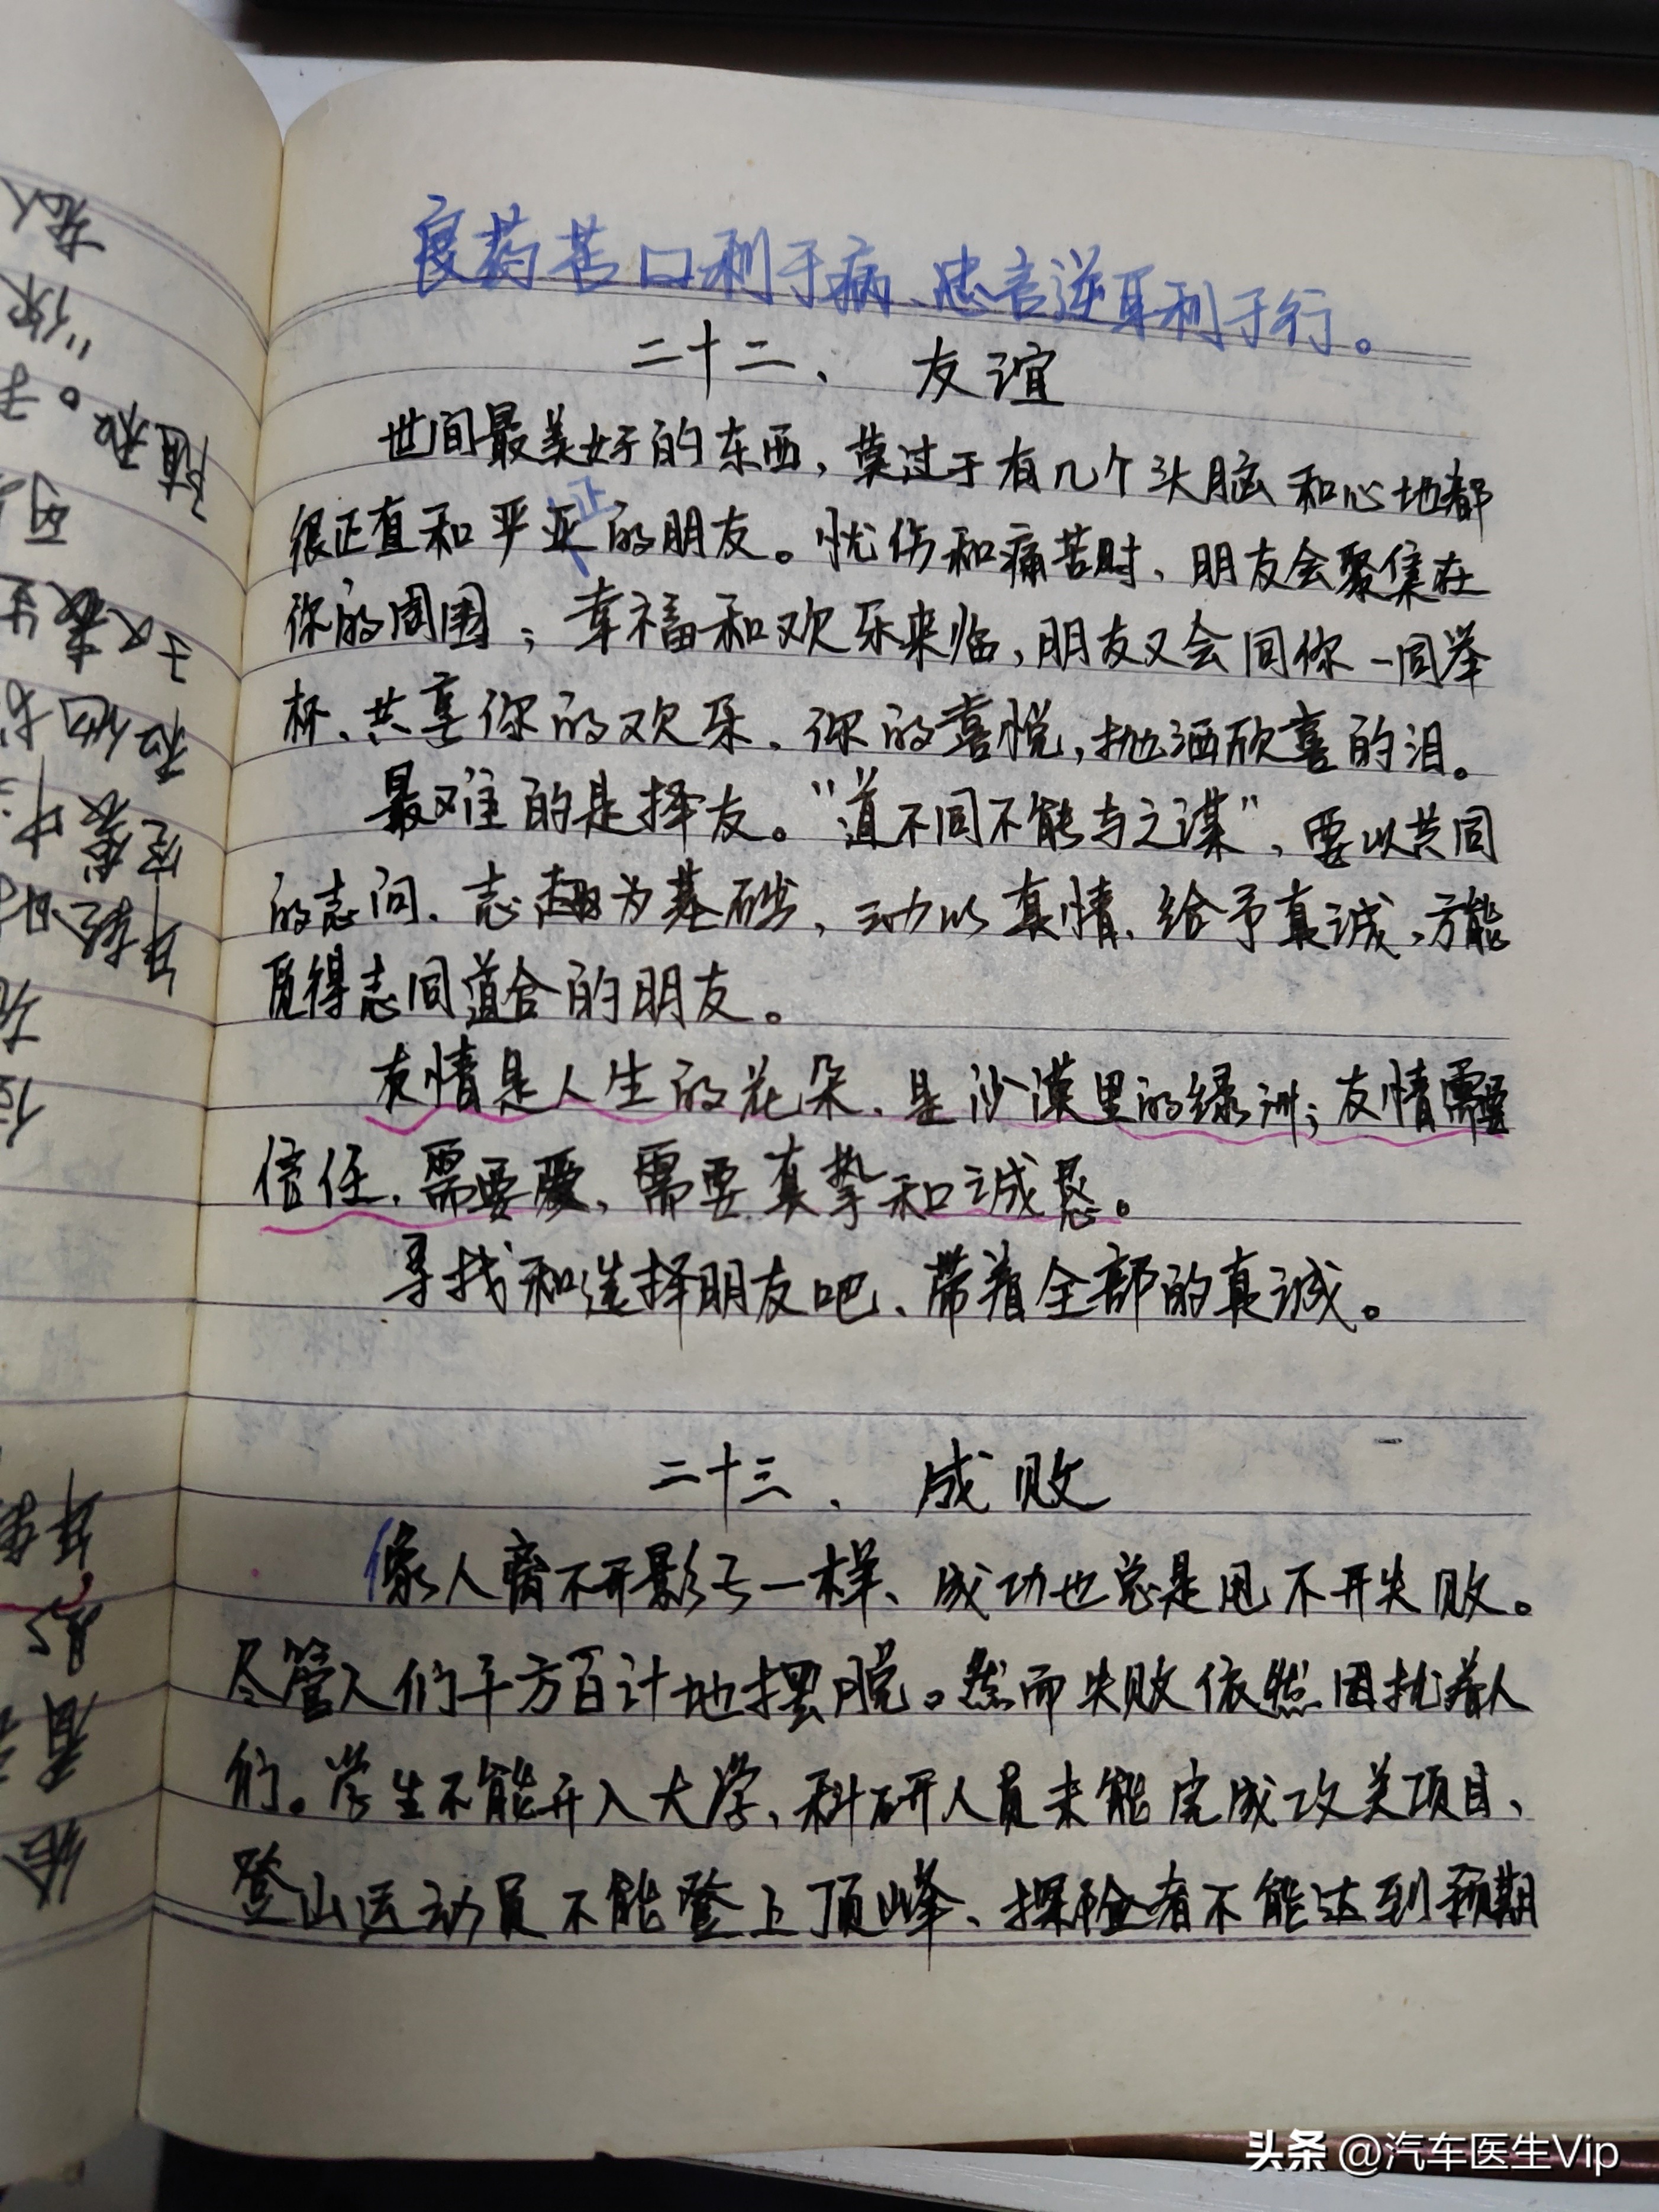 良药苦口利于病、忠言逆耳利于行。
二十二、 友谊
世间最美好的东西，莫过于有几个头脑和心地都
很正直和严正的朋友。忧伤和痛苦时、朋友会聚集在
你的周围；幸福和欢乐来临，朋友又会同你一同举
杯、共享你的欢乐、你的喜悦，抛洒欣喜的泪。
最难的是择友。“道不同不能与之谋”，要以共同
的志向、志趣为基础、动以真情、给予真诚，方能
觅得志同道合的朋友。
友情是人生的花朵、是沙漠里的绿洲；友情需要
信任、需要爱、需要真挚和诚恳。
寻找和选择朋友吧、带着全部的真诚。
二十三、 成败
像人离不开影子一样、成功也总是甩不开失败。
尽管人们千方百计地摆脱。然而失败依然困扰着人
们。学生不能升入大学、科研人员未能完成攻关项目、
登山运动员不能登上顶峰、探险者不能达到预期
头条 @汽车医生Vip